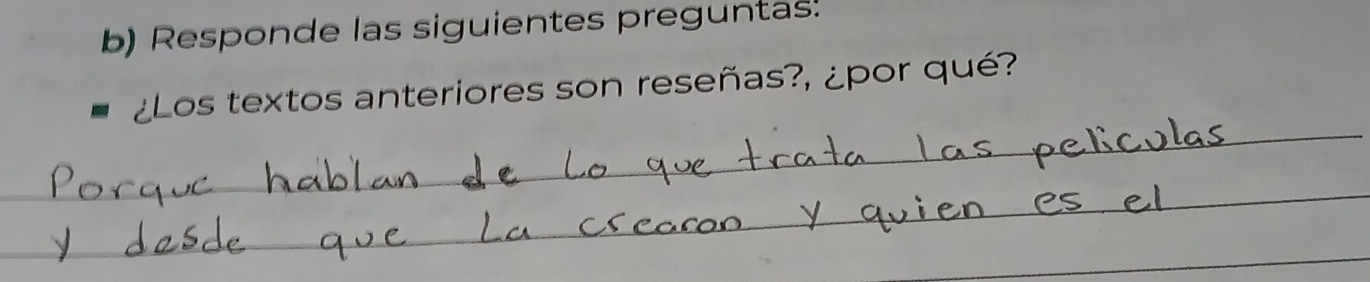 b) Responde las siguientes preguntas:
▪ ¿Los textos anteriores son reseñas?, ¿por qué?
Porque hablan de Lo que trata las peliculas
y desde que La crearon y quien es el